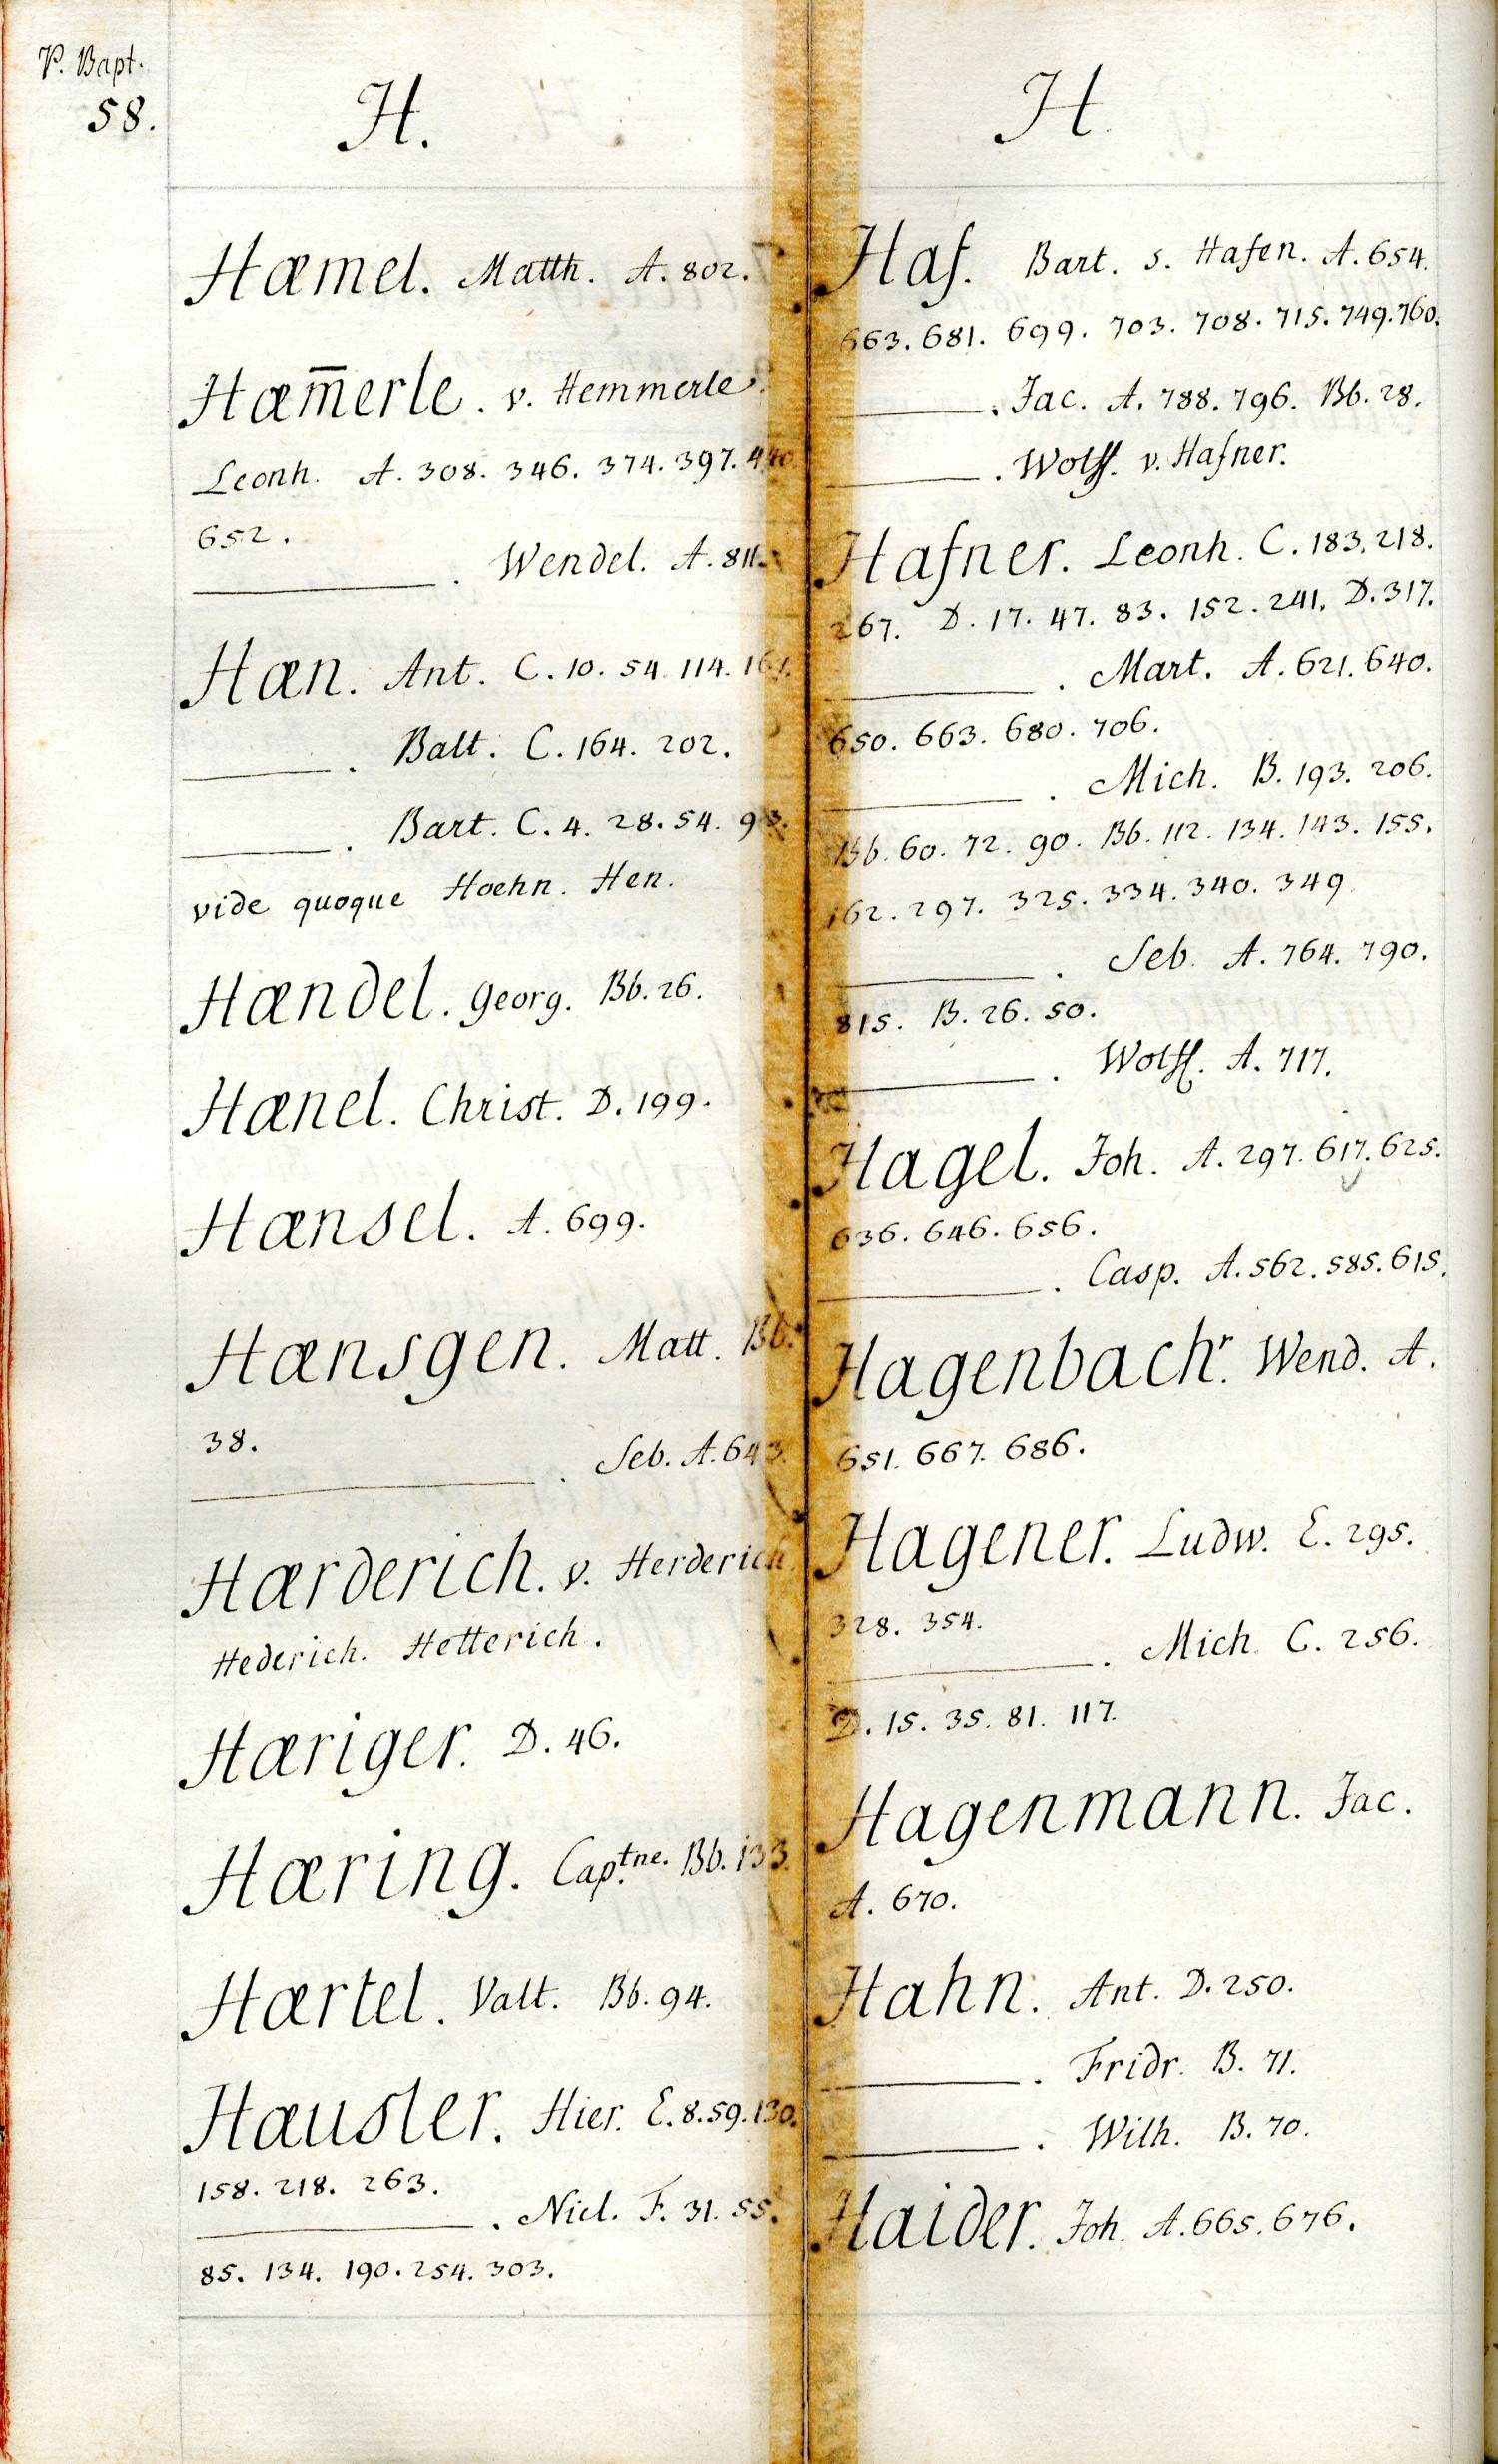 P. Bapt.
58.
H.
Hæmel. Matth. A. 802.
Hæm̅erle. v. Hemmerle.
Leonh. A. 308. 346. 374. 397. 440.
652.
———. Wendel. A. 811.
Hæn. Ant. C. 10. 54. 114. 161.
———. Balt. C. 164. 202.
———. Bart. C. 4. 28. 54. 93.
vide quoque Hoehn. Hen.
Hændel. Georg. Bb. 26.
Hænel. Christ. D. 199.
Hænsel. A. 699.
Hænsgen. Matt. Bb.
38.
———. Seb. A. 643.
Hærderich. v. Herderich
Hederich. Hetterich.
Hæriger. D. 46.
Hæring. Cap.tne. Bb. 133.
Hærtel. Valt. Bb. 94.
Hæusler. Hier. E. 8. 59. 130.
158. 218. 263.
———. Nicl. F. 31. 55.
85. 134. 190. 254. 303.
H.
Haf. Bart. s. Hafen. A. 654.
663. 681. 699. 703. 708. 715. 749. 760.
———. Jac. A. 788. 796. Bb. 28.
———. Wolff. v. Hafner.
Hafner. Leonh. C. 183. 218.
267. D. 17. 47. 83. 152. 241. D. 317.
———. Mart. A. 621. 640.
650. 663. 680. 706.
———. Mich. B. 193. 206.
Bb. 60. 72. 90. Bb. 112. 134. 143. 155.
162. 297. 325. 334. 340. 349
———. Seb. A. 764. 790.
815. B. 26. 50.
———. Wolff. A. 717.
Hagel. Joh. A. 297. 617. 625.
636. 646. 656.
———. Casp. A. 562. 585. 615.
Hagenbachr. Wend. A.
651. 667. 686.
Hagener. Ludw. E. 295.
328. 354.
———. Mich. C. 256.
D. 15. 35. 81. 117.
Hagenmann. Jac.
A. 670.
Hahn. Ant. D. 250.
———. Fridr. B. 71.
———. Wilh. B. 70.
Haider. Joh. A. 665. 676.